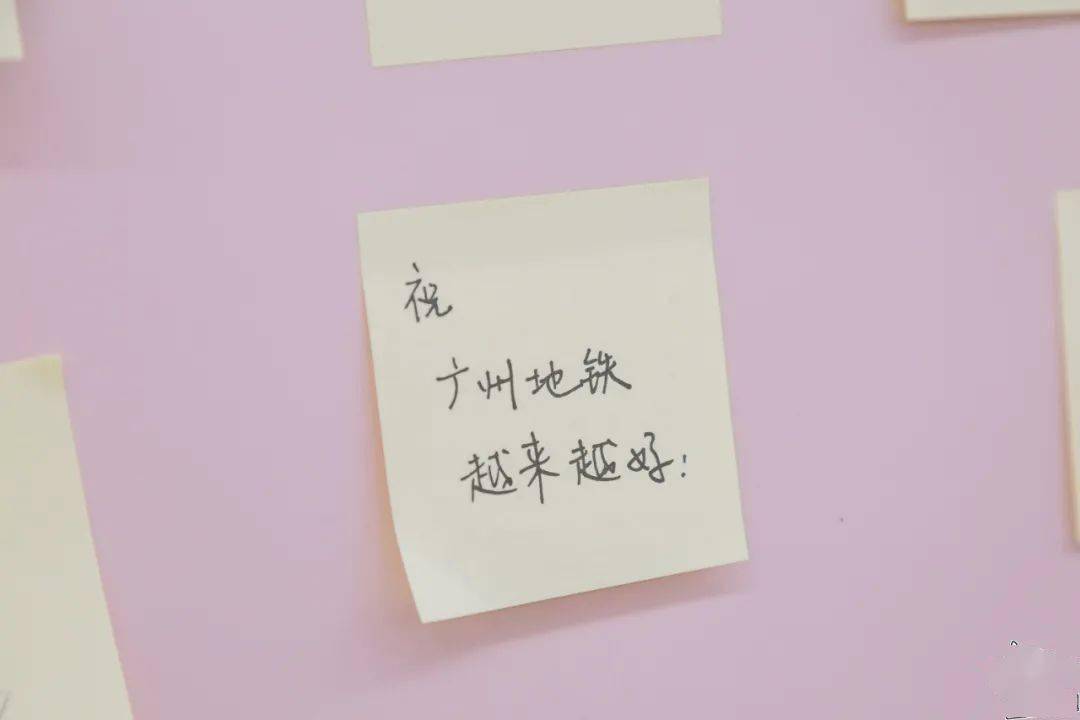 祝
广州地铁
越来越好!